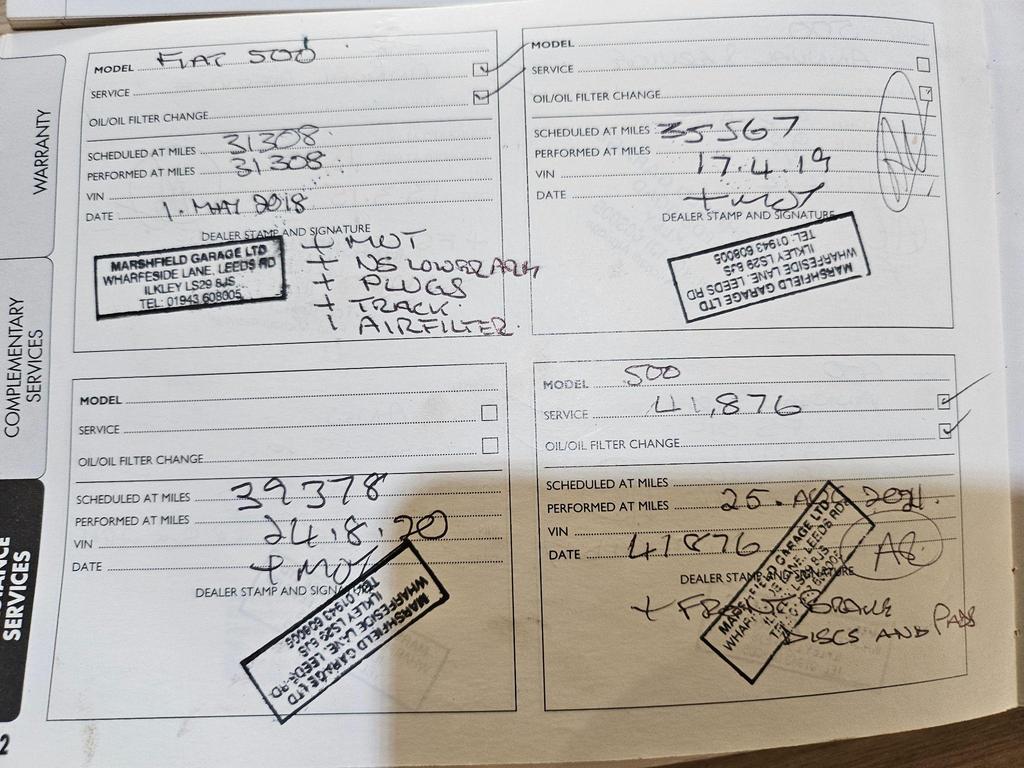 WARRANTY
COMPLEMENTARY
SERVICES
SERVICES
2
MODEL FIAT 500
SERVICE
OIL/OIL FILTER CHANGE
SCHEDULED AT MILES 31308
PERFORMED AT MILES 31308
VIN
DATE 1. MAY 2018
DEALER STAMP AND SIGNATURE
MARSHFIELD GARAGE LTD
WHARFESIDE LANE, LEEDS RD
ILKLEY LS29 8JS
TEL: 01943 608005
+ MOT
+ NS LOWER ARM
+ PLUGS
+ TRACK
+ AIRFILTER
MODEL
SERVICE
OIL/OIL FILTER CHANGE
SCHEDULED AT MILES 35567
PERFORMED AT MILES
VIN 17.4.19
DATE + MOT
DEALER STAMP AND SIGNATURE
MARSHFIELD GARAGE LTD
WHARFESIDE LANE, LEEDS RD
ILKLEY LS29 8JS
TEL: 01943 608005
MODEL
SERVICE
OIL/OIL FILTER CHANGE
SCHEDULED AT MILES 39378
PERFORMED AT MILES
VIN 24.8.20
DATE + MOT
DEALER STAMP AND SIGNATURE
MARSHFIELD GARAGE LTD
WHARFESIDE LANE, LEEDS RD
ILKLEY LS29 8JS
TEL: 01943 608005
MODEL 500
SERVICE 41,876
OIL/OIL FILTER CHANGE
SCHEDULED AT MILES
PERFORMED AT MILES 25. 2021.
VIN
DATE 41876
DEALER STAMP AND SIGNATURE
MARSHFIELD GARAGE LTD
WHARFESIDE LANE, LEEDS RD
ILKLEY LS29 8JS
+ FRONT BRAKE
DISCS AND PADS